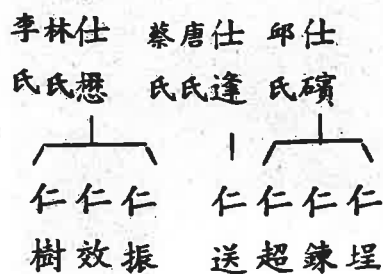 李林仕 蔡唐仕 邱仕
氏氏懋 氏氏逢 氏礦
仁仁仁 仁仁仁仁
樹效振 送超鍊埕